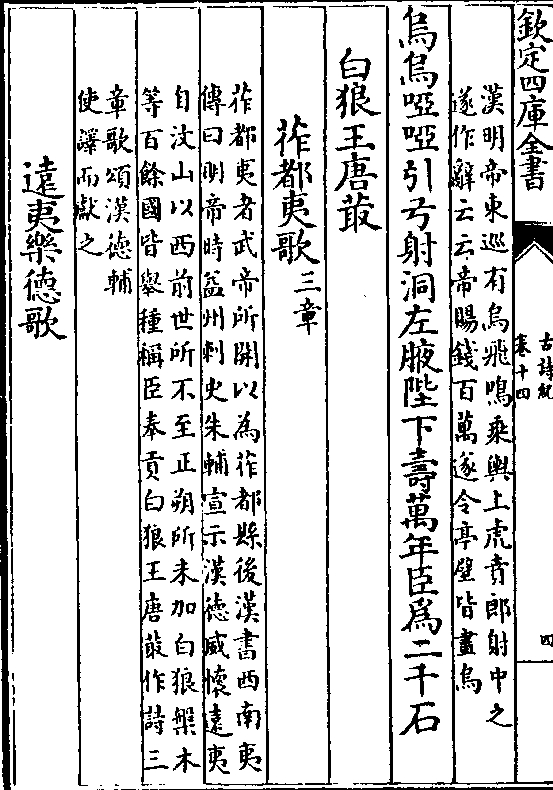 欽定四庫全書
古詩紀
卷十四
四
漢明帝東巡有烏飛鳴乘輿上虎賁郎射中之
遂作辭云云帝賜錢百萬遂令亭壁皆畫烏
烏烏啞啞引弓射洞左腋陛下壽萬年臣爲二千石
白狼王唐菆
莋都夷歌三章
莋都夷者武帝所開以為莋都縣後漢書西南夷
傳曰明帝時益州刺史朱輔宣示漢德威懷遠夷
自汶山以西前世所不至正朔所未加白狼槃木
等百餘國皆舉種稱臣奉貢白狼王唐菆作詩三
章歌頌漢德輔
使譯而獻之
遠夷樂德歌